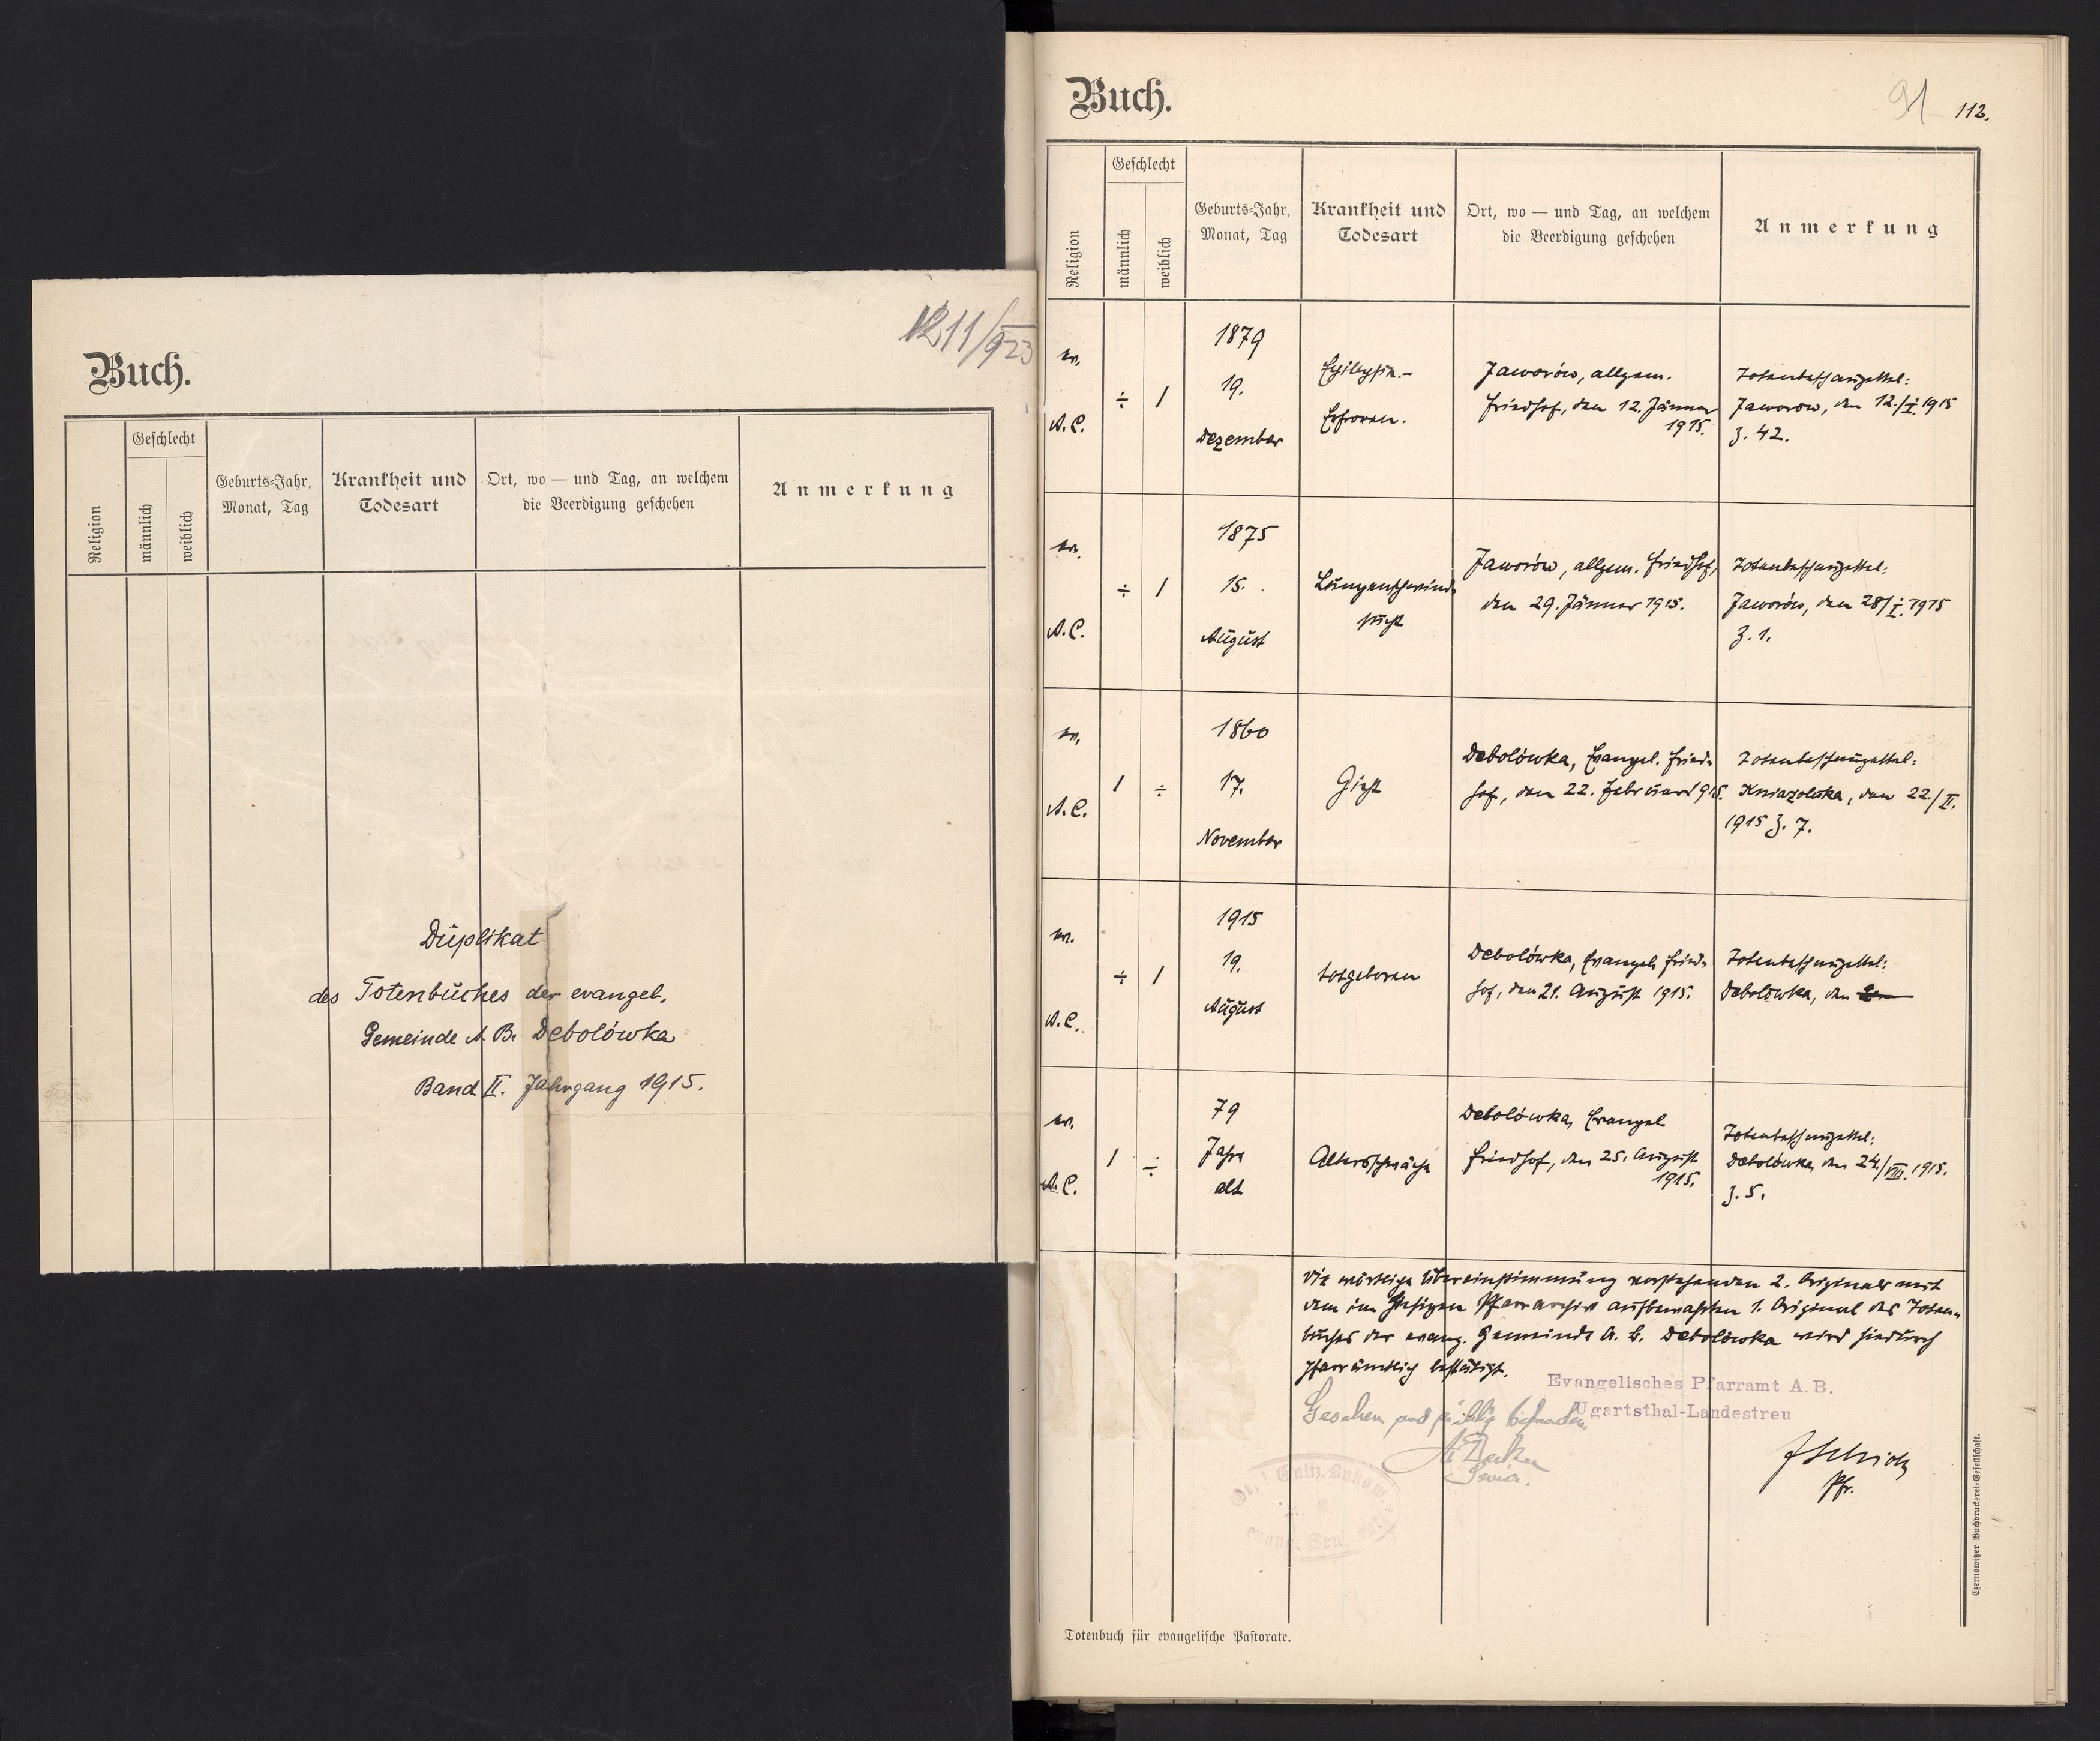 1211/923
Buch.
Religion
Geschlecht
männlich
weiblich
Geburts-Jahr,
Monat, Tag
Krankheit und
Todesart
Ort, wo — und Tag, an welchem
die Beerdigung geschehen
Anmerkung
Duplikat
des Totenbuches der evangel.
Gemeinde A. B. Debolówka
Band II. Jahrgang 1915.
Buch.
91 112.
Religion
Geschlecht
männlich
weiblich
Geburts-Jahr,
Monat, Tag
Krankheit und
Todesart
Ort, wo — und Tag, an welchem
die Beerdigung geschehen
Anmerkung
ev.
A. C.
÷ 1
1879
19.
Dezember
Epilepsie.-
Erfroren.
Jaworów, allgem.
Friedhof, den 12. Jänner
1915.
Totenbeschauzettel:
Jaworow, den 12./I. 1915
Z. 42.
ev.
A. C.
÷ 1
1875
15.
August
Lungenschwind-
sucht
Jaworów, allgem. Friedhof,
den 29. Jänner 1915.
Totenbeschauzettel:
Jaworów, den 28/I. 1915
Z. 1.
ev.
A. C.
1 ÷
1860
17.
November
Gicht
Debolówka, Evangel. Fried-
hof, den 22. Februar 1915.
Totenbeschauzettel:
Kniazoluka, den 22./II.
1915 Z. 7.
ev.
A. C.
÷ 1
1915
19.
August
totgeboren
Debolówka, Evangel. Fried-
hof, den 21. August 1915.
Totenbeschauzettel:
Debolówka, den
ev.
A. C.
1 ÷
79
Jahre
alt
Altersschwäche
Debolówka, Evangel.
Friedhof, den 25. August
1915.
Totenbeschauzettel:
Debolówka, den 24./VIII. 1915.
Z. 5.
Die wörtliche Übereinstimmung vorstehenden 2. Originals mit
dem im hiesigen Pfarrarchiv aufbewahrten 1. Original des Toten-
buches der evang. Gemeinde A. B. Debolówka wird hiedurch
pfarrämtlich bestätigt.
Evangelisches Pfarramt A.B.
Ugartsthal-Landestreu
Gesehen und richtig befunden
Pfr.
Totenbuch für evangelische Pastorate.
Czernowitzer Buchdruckerei-Gesellschaft.